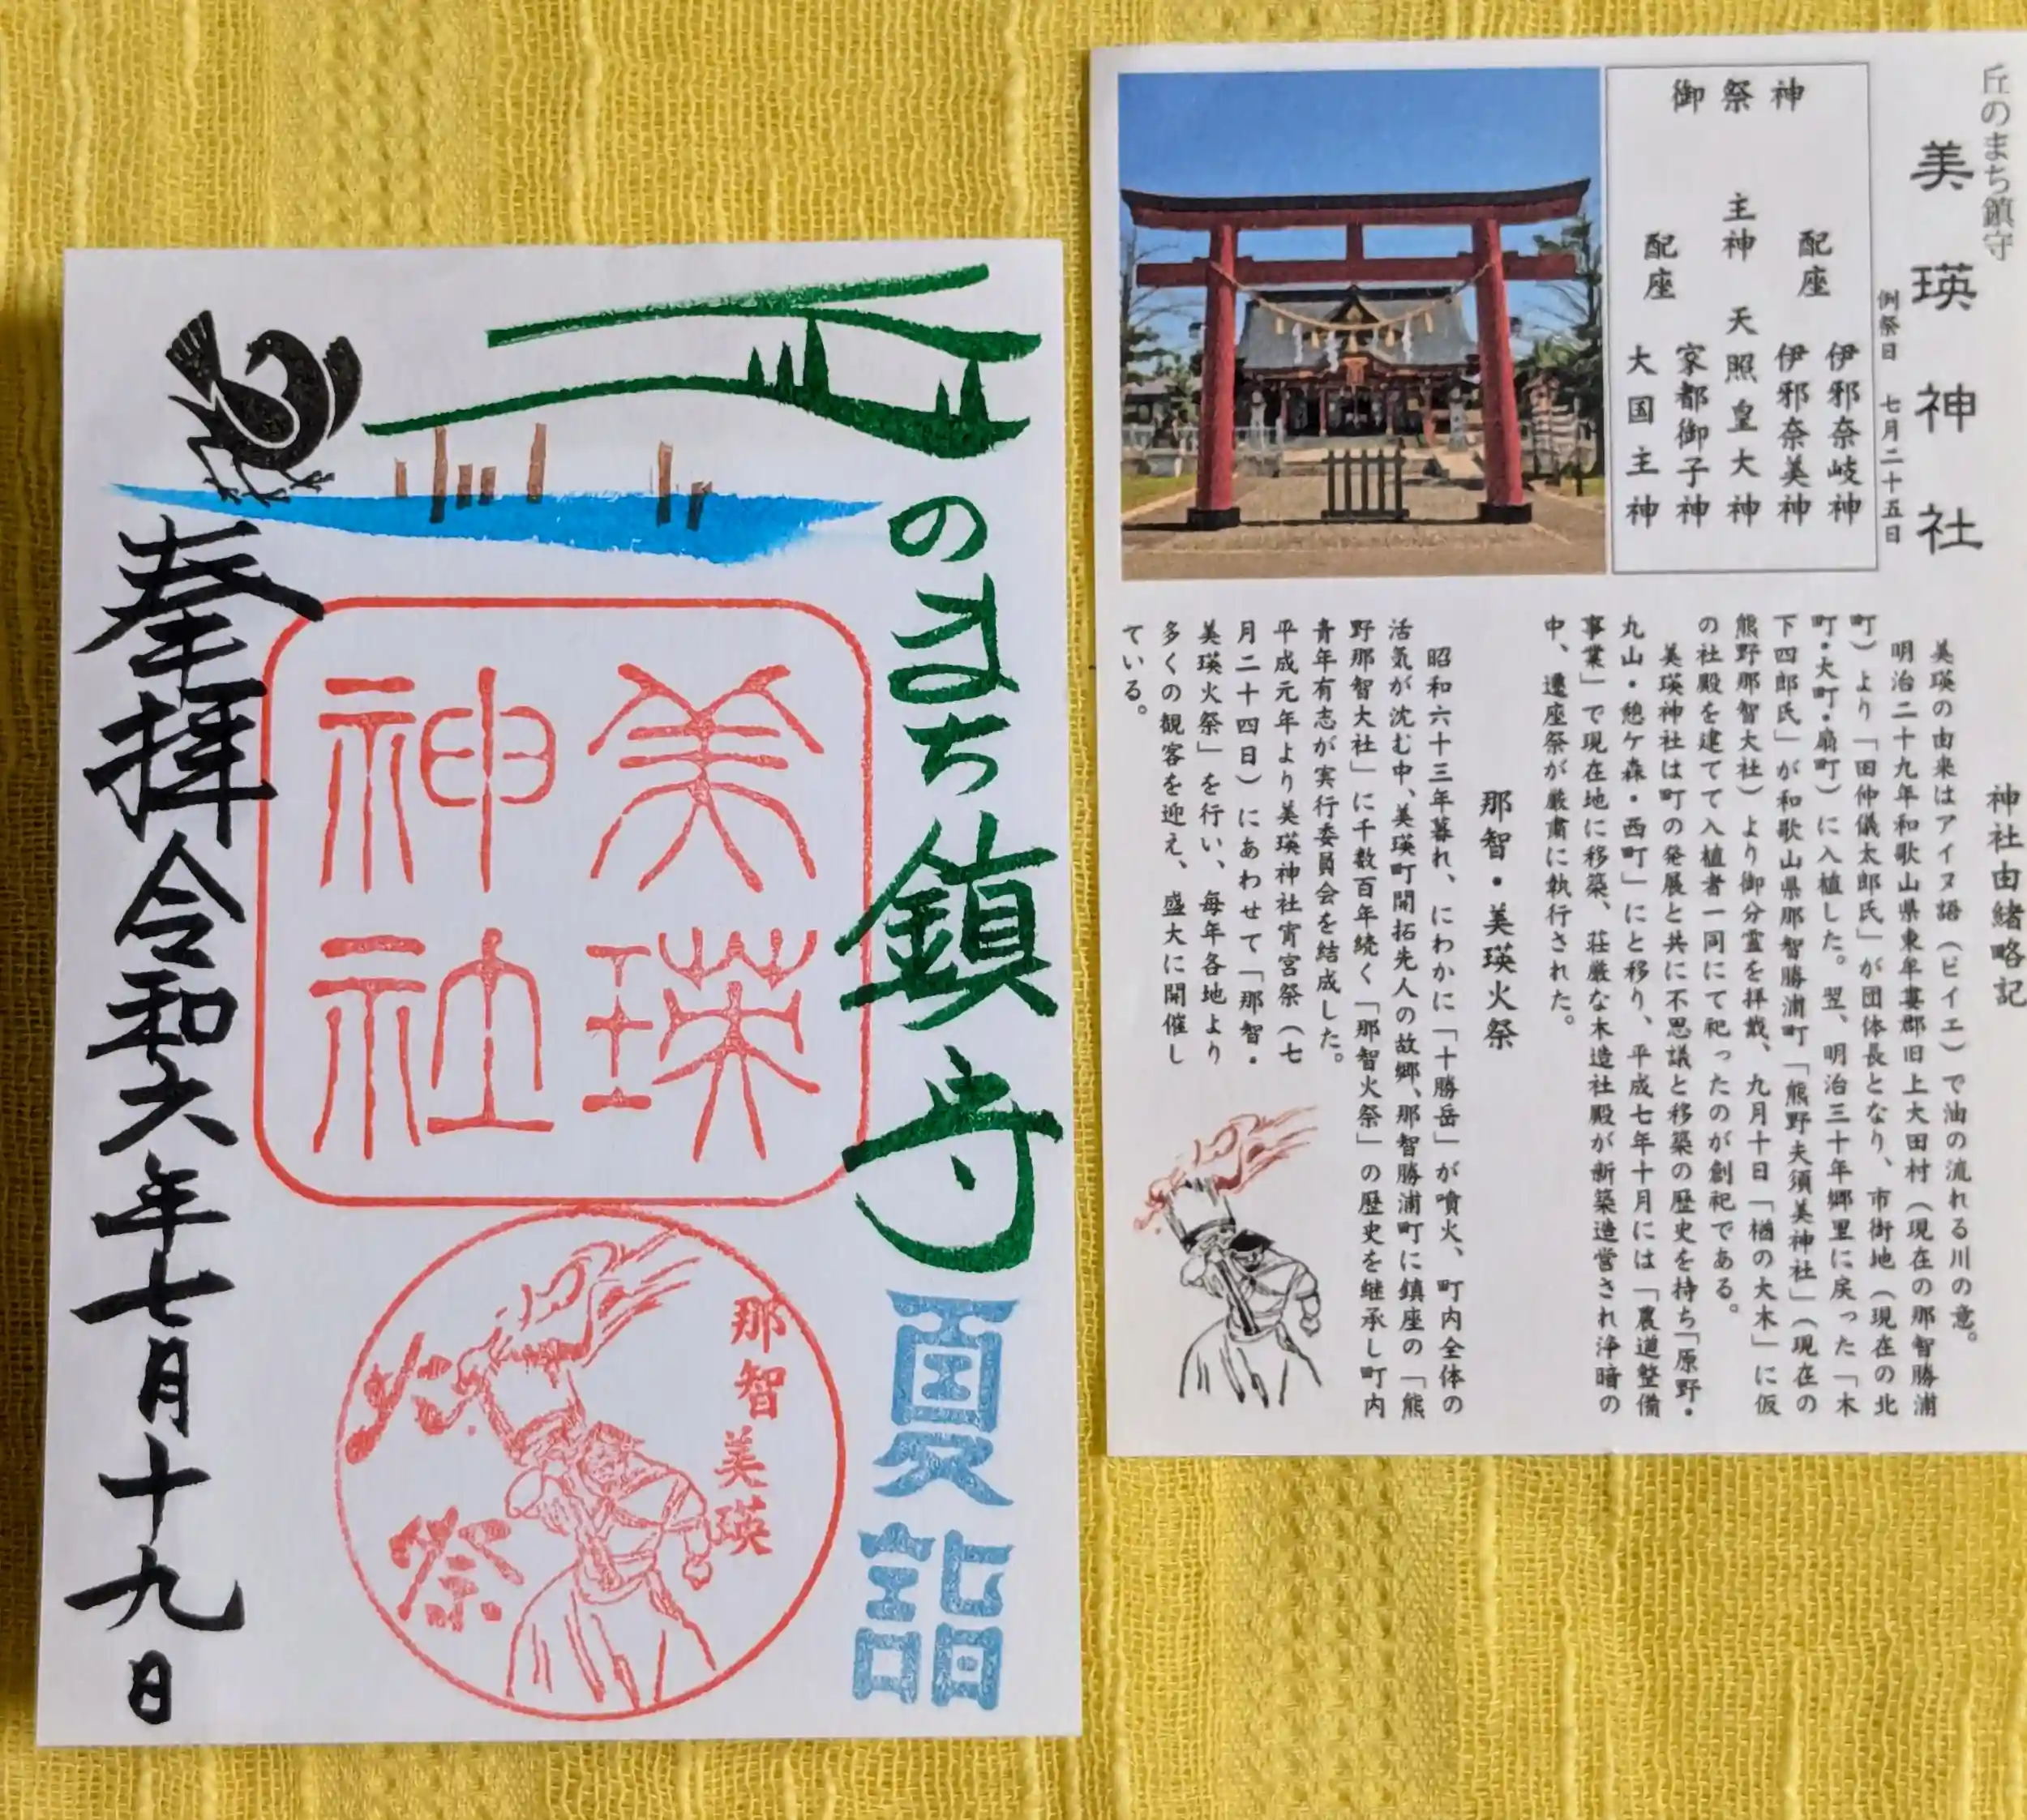 丘のまち鎮守
夏詣
美瑛
神社
那智美瑛
火祭
奉拝令和六年七月十九日
丘のまち鎮守
美瑛神社
例祭日 七月二十五日
御祭神
配座 伊邪奈岐神
伊邪奈美神
主神 天照皇大神
配座 家都御子神
大国主神
神社由緒略記
美瑛の由来はアイヌ語(ピイエ)で油の流れる川の意。
明治二十九年和歌山県東牟婁郡旧上大田村(現在の那智勝浦
町)より「田仲儀太郎氏」が団体長となり、市街地(現在の北
町・大町・扇町)に入植した。翌、明治三十年郷里に戻った「木
下四郎氏」が和歌山県那智勝浦町「熊野夫須美神社」(現在の
熊野那智大社)より御分霊を拝戴、九月十日「楢の大木」に仮
の社殿を建てて入植者一同にて祀ったのが創祀である。
美瑛神社は町の発展と共に不思議と移築の歴史を持ち「原野・
丸山・憩ケ森・西町」にと移り、平成七年十月には「農道整備
事業」で現在地に移築、荘厳な木造社殿が新築造営され浄暗の
中、遷座祭が厳粛に執行された。
那智・美瑛火祭
昭和六十三年暮れ、にわかに「十勝岳」が噴火、町内全体の
活気が沈む中、美瑛町開拓先人の故郷、那智勝浦町に鎮座の「熊
野那智大社」に千数百年続く「那智火祭」の歴史を継承し町内
青年有志が実行委員会を結成した。
平成元年より美瑛神社宵宮祭(七
月二十四日)にあわせて「那智・
美瑛火祭」を行い、毎年各地より
多くの観客を迎え、盛大に開催し
ている。